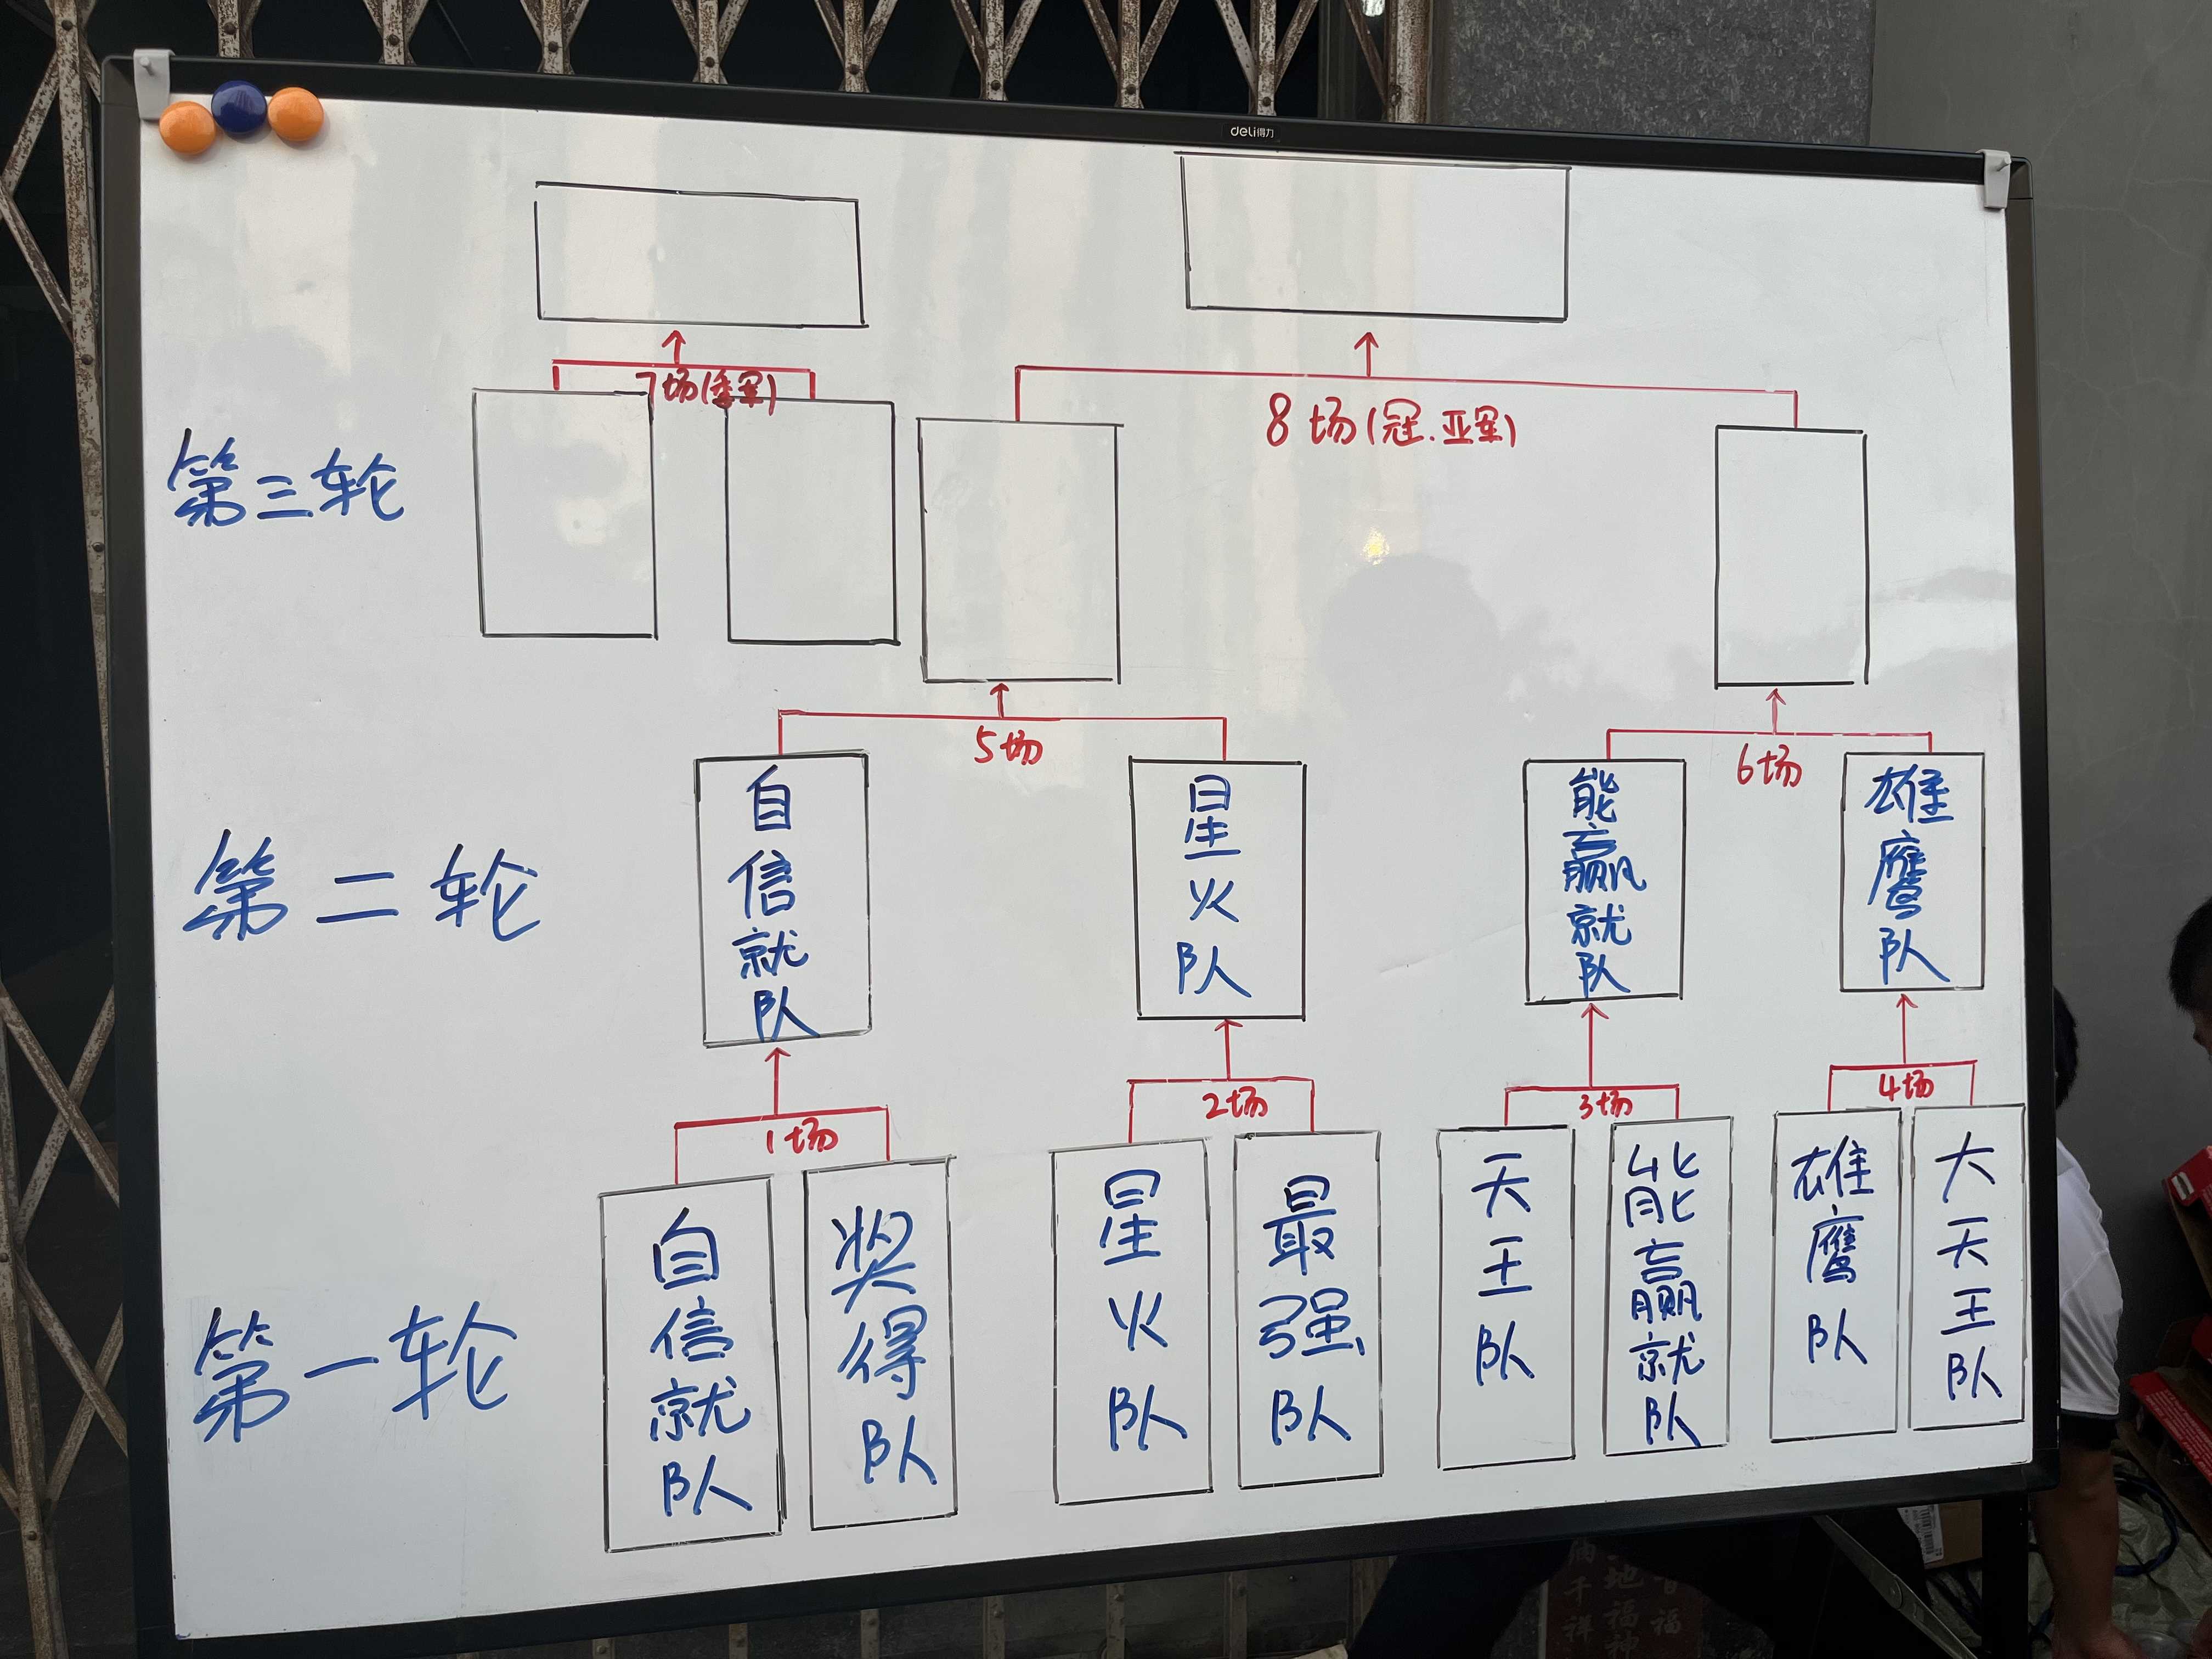 deli得力
7场(季军)
8场(冠.亚军)
第三轮
5场
6场
第二轮
自信就队
星火队
能赢就队
雄鹰队
1场
2场
3场
4场
第一轮
自信就队
奖得队
星火队
最强队
天王队
能赢就队
雄鹰队
大天王队